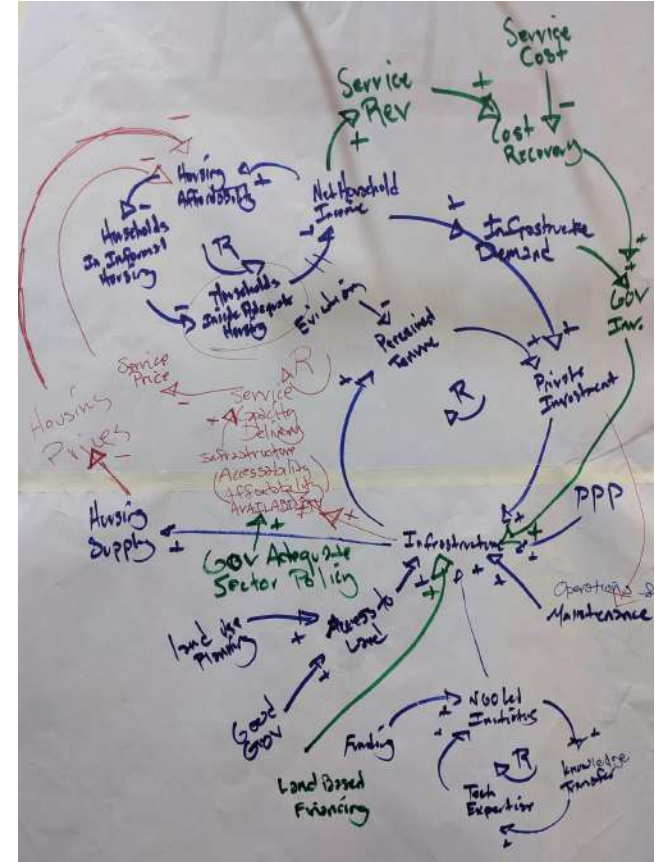 Service
Cost
Service
Rev
+
+
-
Cost
Recovery
-
-
Housing
Affordability
+
-
-
Net Household
Income
-
+
Infrastructure
Demand
Households
In Informal
Housing
R
-
Households
Inside Adequate
Housing
Eviction
-
Perceived
Tenure
+
+
+
+
GOV
Inv.
+
+
Private
Investment
R
Service
Price
-
R
Service
Capacity
Delivery
+
Infrastructure
(Accessability
Affortability
AVAILABILITY)
+
+
Housing
Prices
-
Housing
Supply
+
GOV Adequate
Sector Policy
+
Infrastructure
+
+
+
PPP
Operations &
Maintenance
+
Land Use
Planning
+
Access to
Land
+
+
+
Good
Gov
+
Funding
+
NGO Led
+
R
+
Knowledge
Transfer
Tech
Expertise
+
Land Based
Financing